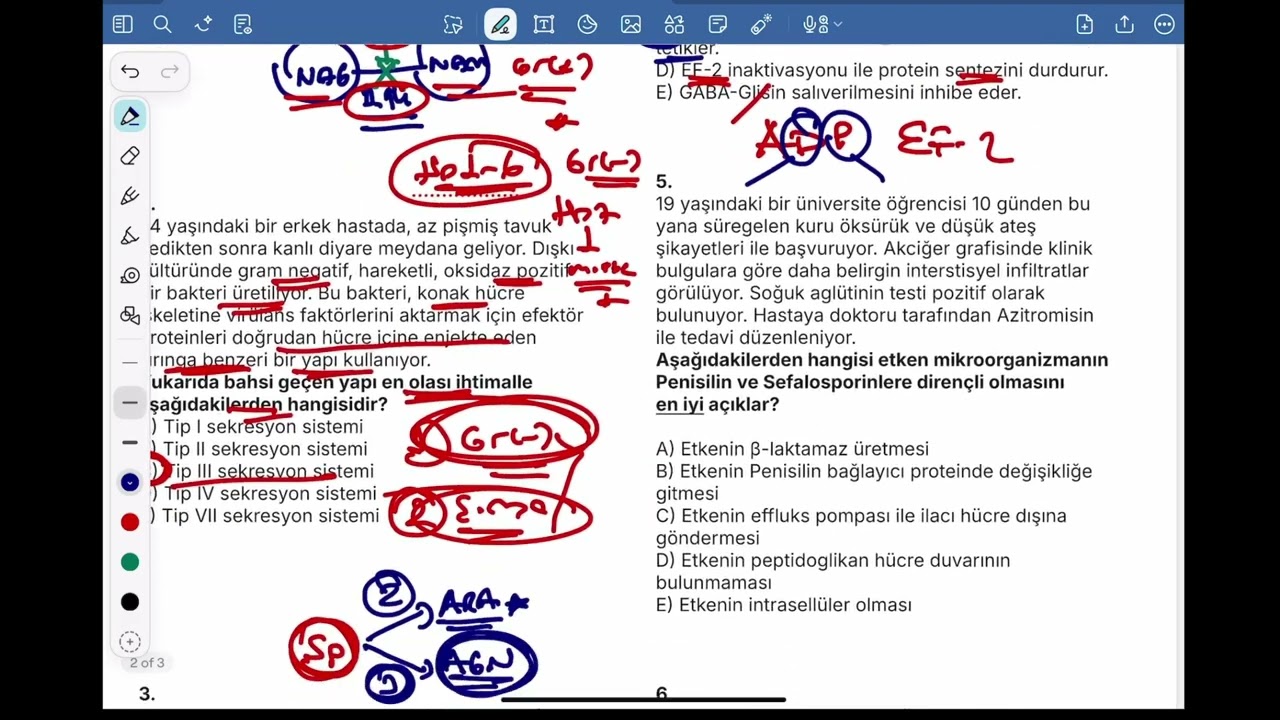 NAG
NAM
Gr(+)
Gr(-)
.
4 yaşındaki bir erkek hastada, az pişmiş tavuk
edikten sonra kanlı diyare meydana geliyor. Dışkı
ültüründe gram negatif, hareketli, oksidaz pozitif
ir bakteri üretiliyor. Bu bakteri, konak hücre
skeletine virülans faktörlerini aktarmak için efektör
roteinleri doğrudan hücre içine enjekte eden
ırınga benzeri bir yapı kullanıyor.
ukarıda bahsi geçen yapı en olası ihtimalle
şağıdakilerden hangisidir?
) Tip I sekresyon sistemi
) Tip II sekresyon sistemi
) Tip III sekresyon sistemi
) Tip IV sekresyon sistemi
) Tip VII sekresyon sistemi
Gr(-)
2
Sp
ARA
AGN
2 of 3
3.
tetikler.
D) EF-2 inaktivasyonu ile protein sentezini durdurur.
E) GABA-Glisin salıverilmesini inhibe eder.
EF-2
5.
19 yaşındaki bir üniversite öğrencisi 10 günden bu
yana süregelen kuru öksürük ve düşük ateş
şikayetleri ile başvuruyor. Akciğer grafisinde klinik
bulgulara göre daha belirgin interstisyel infiltratlar
görülüyor. Soğuk aglütinin testi pozitif olarak
bulunuyor. Hastaya doktoru tarafından Azitromisin
ile tedavi düzenleniyor.
Aşağıdakilerden hangisi etken mikroorganizmanın
Penisilin ve Sefalosporinlere dirençli olmasını
en iyi açıklar?
A) Etkenin β-laktamaz üretmesi
B) Etkenin Penisilin bağlayıcı proteinde değişikliğe
gitmesi
C) Etkenin effluks pompası ile ilacı hücre dışına
göndermesi
D) Etkenin peptidoglikan hücre duvarının
bulunmaması
E) Etkenin intrasellüler olması
6